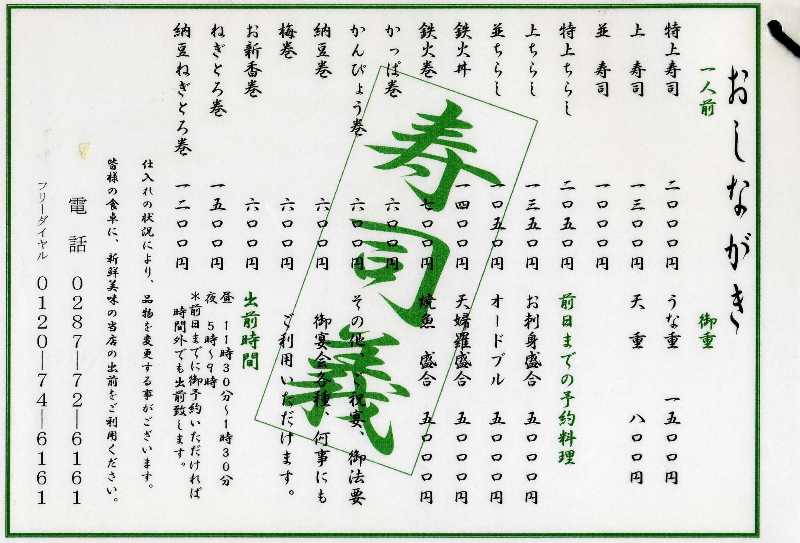 おしながき
一人前
特上寿司 二〇〇〇円
上 寿司 一三〇〇円
並 寿司 一〇〇〇円
特上ちらし 二〇五〇円
上ちらし 一三五〇円
並ちらし 一〇五〇円
鉄火丼 一四〇〇円
鉄火巻 七〇〇円
かっぱ巻 六〇〇円
かんぴょう巻 六〇〇円
納豆巻 六〇〇円
梅巻 六〇〇円
お新香巻 六〇〇円
ねぎとろ巻 一五〇〇円
納豆ねぎとろ巻 一二〇〇円
御重
うな重 一五〇〇円
天 重 八〇〇円
前日までの予約料理
お刺身盛合 五〇〇〇円
オードブル 五〇〇〇円
天婦羅盛合 五〇〇〇円
焼魚 盛合 五〇〇〇円
その他、ご祝宴、御法要
御宴会各種、何事にも
ご利用いただけます。
出前時間
昼 11時30分〜1時30分
夜 5時〜9時
＊前日までに御予約いただければ
時間外でも出前致します。
仕入れの状況により、品物を変更する事がございます。
皆様の食卓に、新鮮美味の当店の出前をご利用ください。
電 話 0287―72―6161
フリーダイヤル 0120―74―6161
寿司義